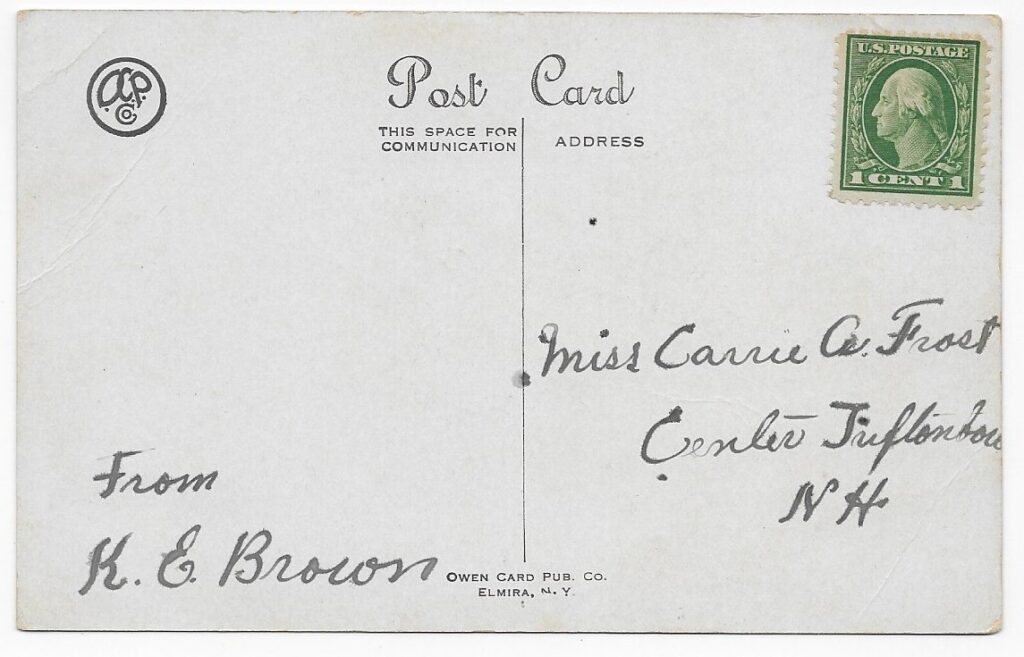 O.C.P. Co.
Post Card
THIS SPACE FOR
COMMUNICATION
ADDRESS
U.S. POSTAGE
1 CENT 1
Miss Carrie A. Frost
Center Tuftonboro
NH
From
K. E. Brown
OWEN CARD PUB. CO.
ELMIRA, N. Y.